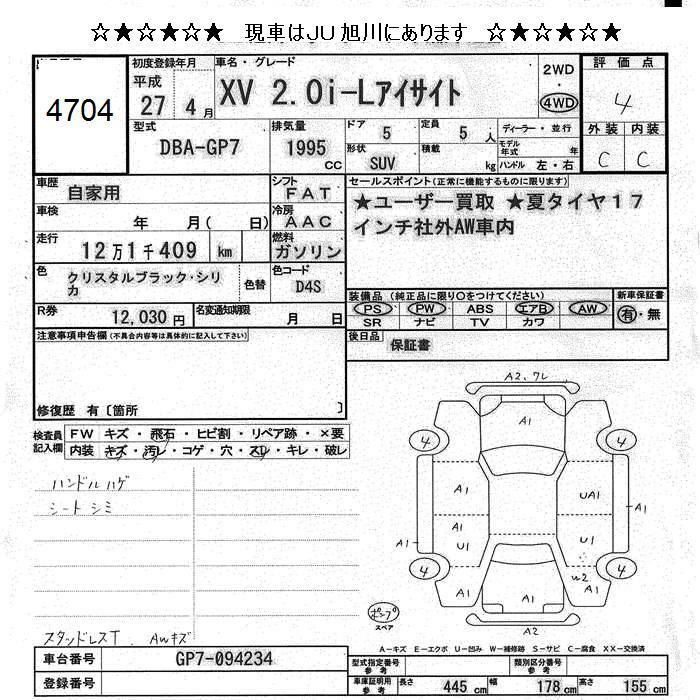 ☆★☆★☆★ 現車はJU旭川にあります ☆★☆★☆★
4704
初度登録年月
平成
27 4 月
車名・グレード
XV 2.0i-Lアイサイト
2WD
4WD
評価点
4
外装 内装
C C
型式
DBA-GP7
排気量
1995
cc
ドア 5
定員 5 人
形状 SUV
積載 kg
ディーラー・並行
モデル年式 年
ハンドル 左・右
車歴 自家用
シフト FAT
車検 年 月( 日)
冷房 AAC
走行 12万1千409 km
燃料 ガソリン
色 クリスタルブラック・シリカ
色替
色コード D4S
R券 12,030 円
名変通知期限 月 日
セールスポイント(正常に機能するものに限ります)
★ユーザー買取 ★夏タイヤ17
インチ社外AW車内
装備品(純正品に限り○をつけてください)
PS PW ABS エアB AW
SR ナビ TV カワ
新車保証書
有・無
後日品 保証書
注意事項申告欄(不具合内容等は具体的に記入して下さい)
修復歴 有〔箇所 〕
検査員記入欄
FW キズ・飛石・ヒビ割・リペア跡・×要
内装 キズ・汚レ・コゲ・穴・スレ・キレ・破レ
ハンドルハゲ
シートシミ
スタッドレスT AWキズ
A2.ワレ
A1
4
4
A1
UA1
A1
A1
U1
A1
U1
A1
4
4
W2
A1
A1
A1
A2
ポンプ
スペア
A-キズ E-エクボ U-凹み W-補修跡 S-サビ C-腐食 XX-交換済
車台番号 GP7-094234
登録番号
型式指定番号 参考
類別区分番号 参考
車庫証明用 参考
長さ 445 cm
幅 178 cm
高さ 155 cm